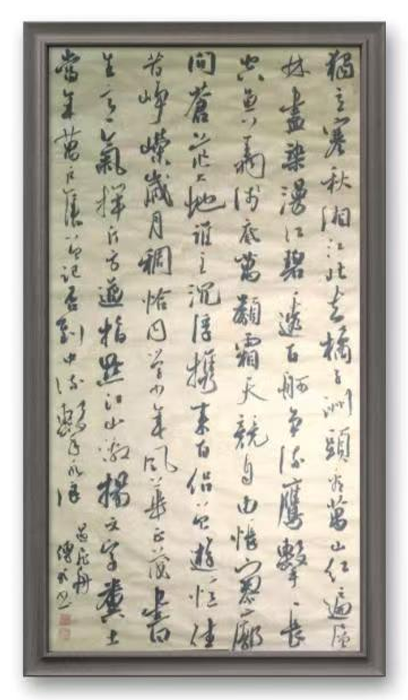 獨立寒秋湘江北去橘子洲頭看萬山紅遍層
林盡染漫江碧透百舸爭流鷹擊長
空魚翔淺底萬類霜天競自由悵寥廓
問蒼茫大地誰主沉浮携來百侶曾遊憶往
昔崢嶸歲月稠恰同學少年風華正茂書
生意氣揮斥方遒指點江山激揚文字糞土
當年萬户侯曾記否到中流擊水浪
遏飛舟